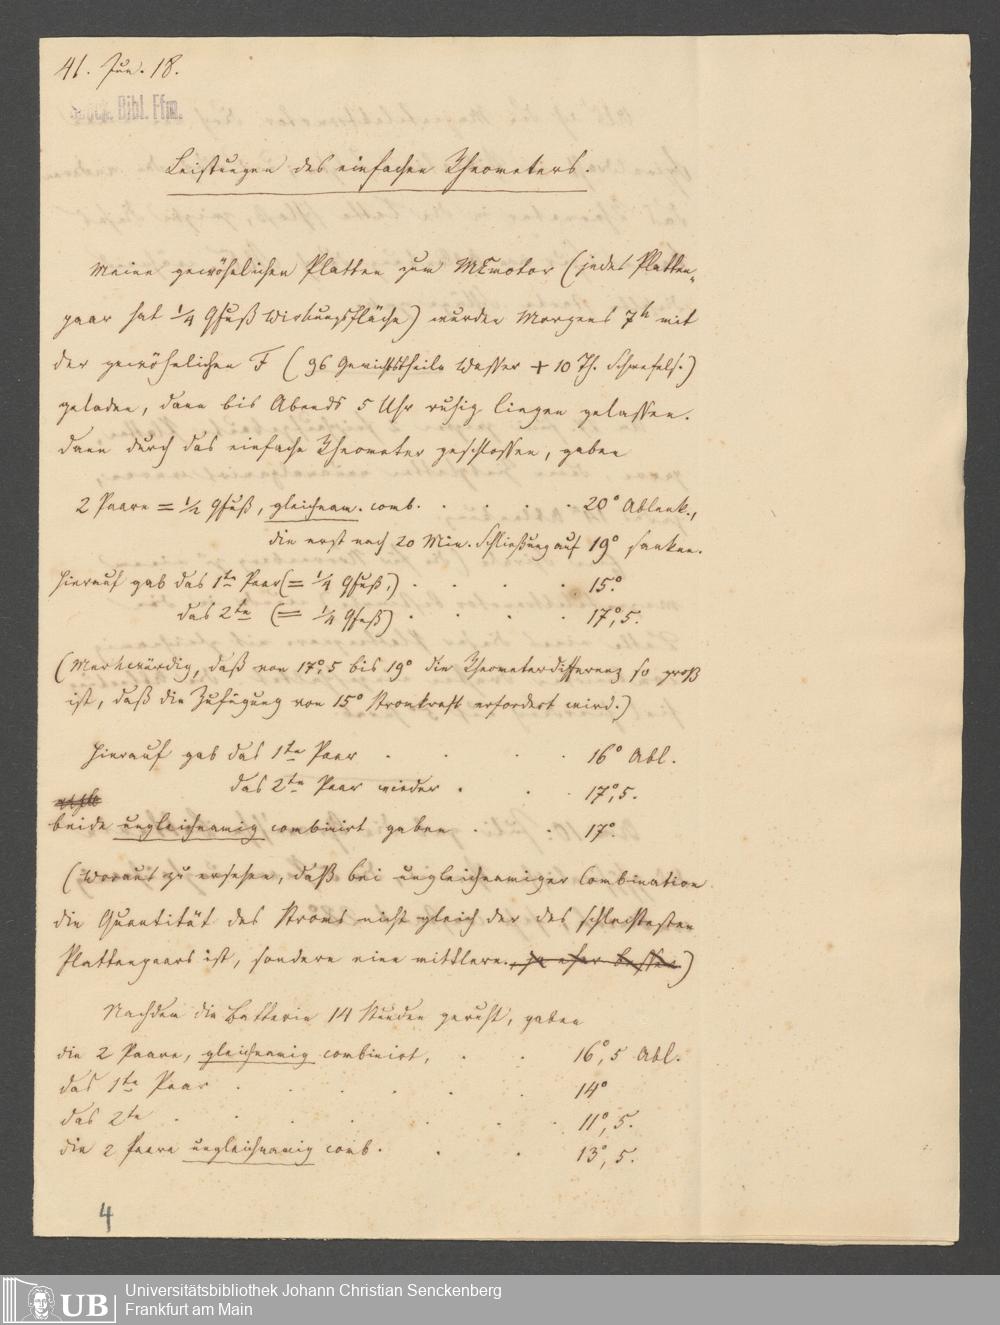 41. Jun. 18.
Senck. Bibl. Ffm.
Leistungen des einfachen Rheometers.
Meine gewöhnlichen Platten zum MEmotor (jedes Platten-
paar hat 1/4 Qfuß Wirkungsfläche) wurden Morgens 7h mit
der gewöhnlichen F (96 Gewichtstheile Wasser + 10 Th. Schwefels.)
geladen, dann bis Abends 5 Uhr ruhig liegen gelassen.
Dann durch das einfache Rheometer geschlossen, gaben
2 Paare = 1/2 Qfuß, gleichnam. comb. . . . . . 20° Ablenk.,
die erst nach 20 Min. Schließung auf 19° sanken.
Hierauf gab das 1te Paar (= 1/4 Qfuß,) . . . 15°.
das 2te (= 1/4 Qfuß) . . . . 17°,5.
(Merkwürdig, daß von 17°,5 bis 19° die Rheometerdifferenz so groß
ist, daß die Zufügung von 15° Stromkraft erfordert wird.)
Hierauf gab das 1te Paar . . . . 16° Abl.
das 2te Paar wieder . . . 17°,5.
beide ungleichnamig combinirt gaben . . 17°.
(Woraus zu ersehen, daß bei ungleichnamiger Combination
die Quantität des Stroms nicht gleich der des schlechtesten
Plattenpaars ist, sondern eine mittlere, ja eher besser)
Nachdem die Batterie 14 Stunden geruht, gaben
die 2 Paare, gleichnamig combinirt, . . 16°,5 Abl.
das 1te Paar . . . . . . 14°
das 2te . . . . . . . 11°,5.
die 2 Paare ungleichnamig comb. . . 13°,5.
4
UB
Universitätsbibliothek Johann Christian Senckenberg
Frankfurt am Main